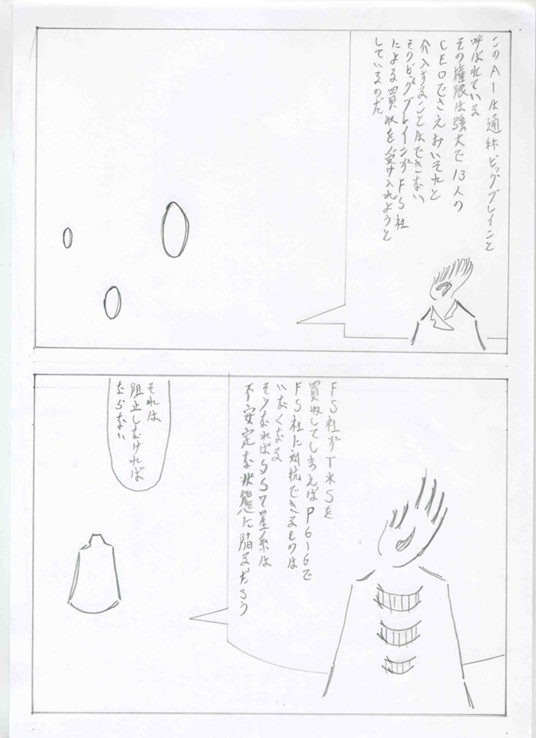 このAIは通称ビッグブレインと
呼ばれている
その権限は強大で13人の
CEOでさえおいそれと
介入することはできない
そのビッグブレインがFS社
による買収を受け入れようと
しているのだ
FS社がTKSを
買収してしまえばP616で
FS社に対抗できるものは
いなくなる
そうなればSS7星系は
不安定な状態に陥るだろう
それは
阻止しなければ
ならない